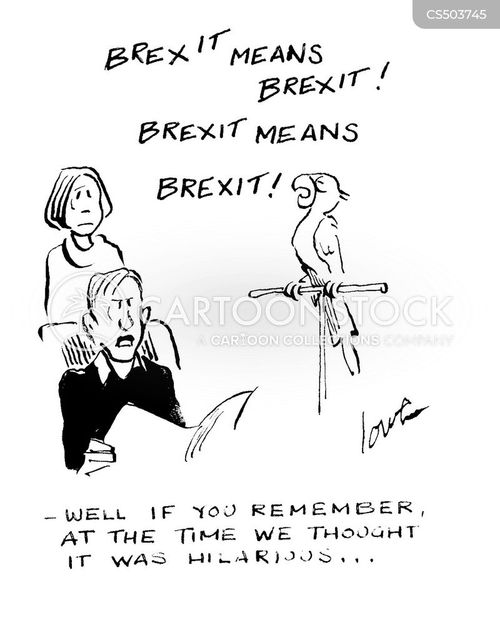 CS503745
BREXIT MEANS
BREXIT!
BREXIT MEANS
BREXIT!
CARTOONSTOCK
A CARTOON COLLECTIONS COMPANY
Lowe
- WELL IF YOU REMEMBER,
AT THE TIME WE THOUGHT
IT WAS HILARIOUS...